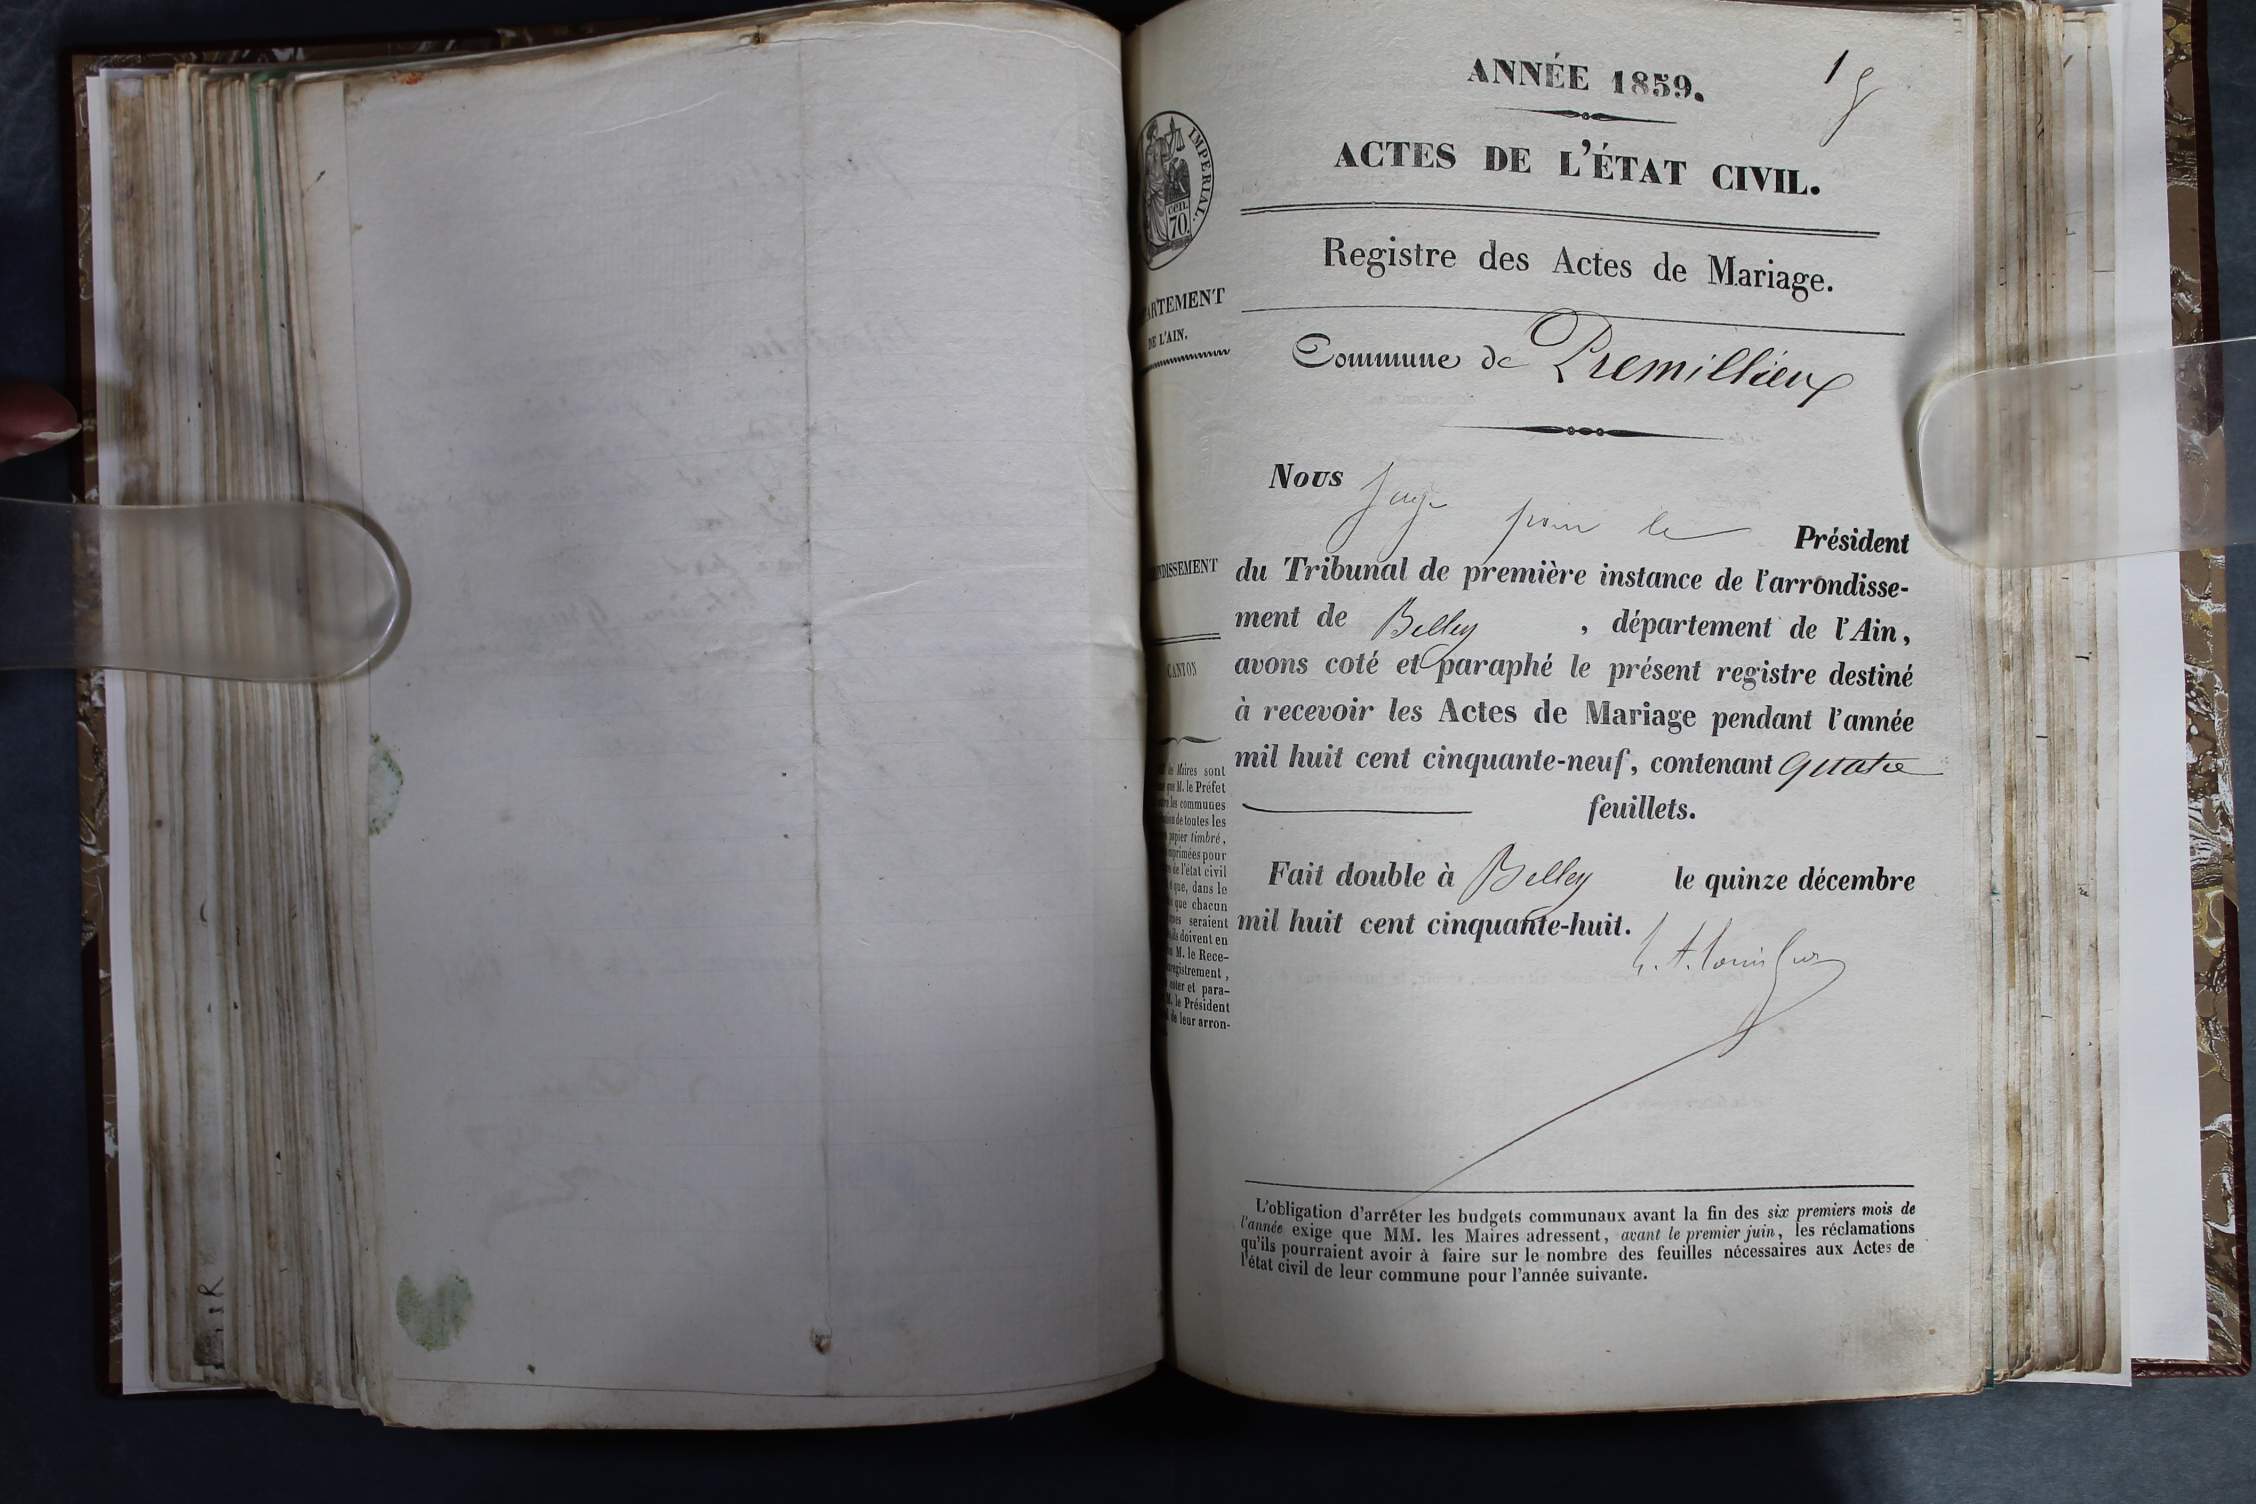 ANNÉE 1859.
1
ACTES DE L'ÉTAT CIVIL.
IMPERIAL.
cen.
70.
Registre des Actes de Mariage.
ARTEMENT
DE L'AIN.
Commune de Premillieux
Nous Juge pour le Président
du Tribunal de première instance de l'arrondisse-
NDISSEMENT
ment de Belley, département de l'Ain,
CANTON
avons coté et paraphé le présent registre destiné
à recevoir les Actes de Mariage pendant l'année
mil huit cent cinquante-neuf, contenant quatre
feuillets.
Fait double à Belley le quinze décembre
mil huit cent cinquante-huit.
Maires sont
M. le Préfet
les communes
de toutes les
papier timbré,
imprimées pour
de l'état civil
que, dans le
que chacun
seraient
doivent en
M. le Rece-
nregistrement,
coter et para-
M. le Président
de leur arron-
L'obligation d'arrêter les budgets communaux avant la fin des six premiers mois de
l'année exige que MM. les Maires adressent, avant le premier juin, les réclamations
qu'ils pourraient avoir à faire sur le nombre des feuilles nécessaires aux Actes de
l'état civil de leur commune pour l'année suivante.